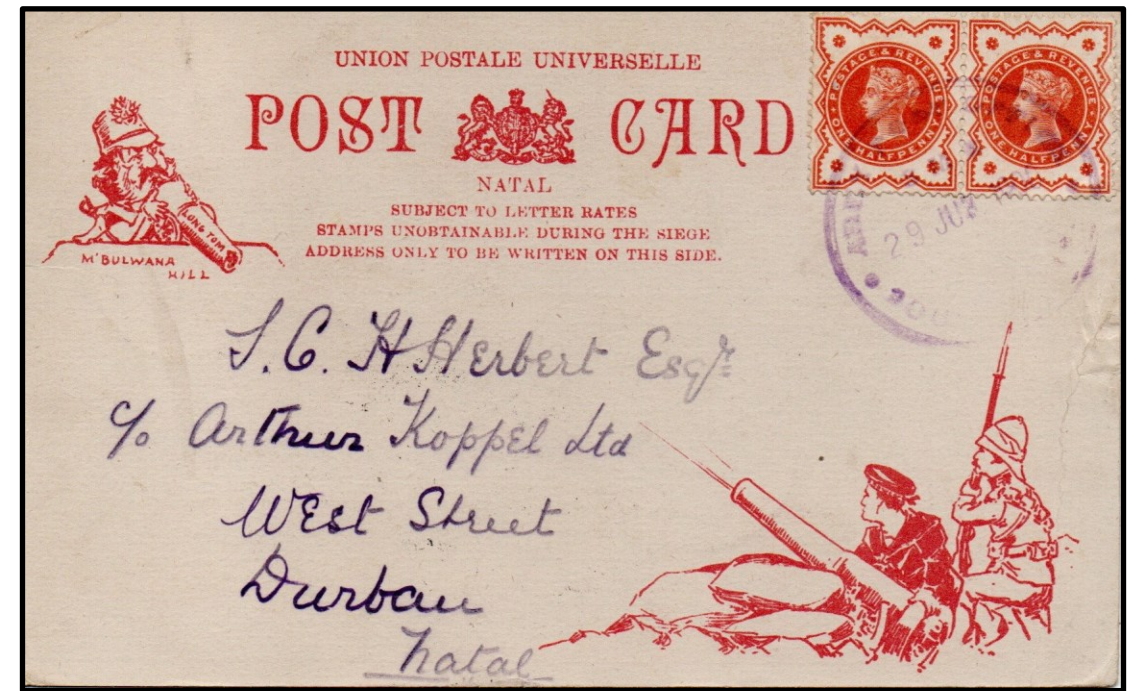 UNION POSTALE UNIVERSELLE
POST CARD
NATAL
SUBJECT TO LETTER RATES
STAMPS UNOBTAINABLE DURING THE SIEGE
ADDRESS ONLY TO BE WRITTEN ON THIS SIDE.
LONG TOM
M'BULWANA
HILL
POSTAGE & REVENUE
ONE HALFPENNY
POSTAGE & REVENUE
ONE HALFPENNY
29 JU
J. C. H Herbert Esqr
c/o Arthur Koppel Ltd
West Street
Durban
Natal